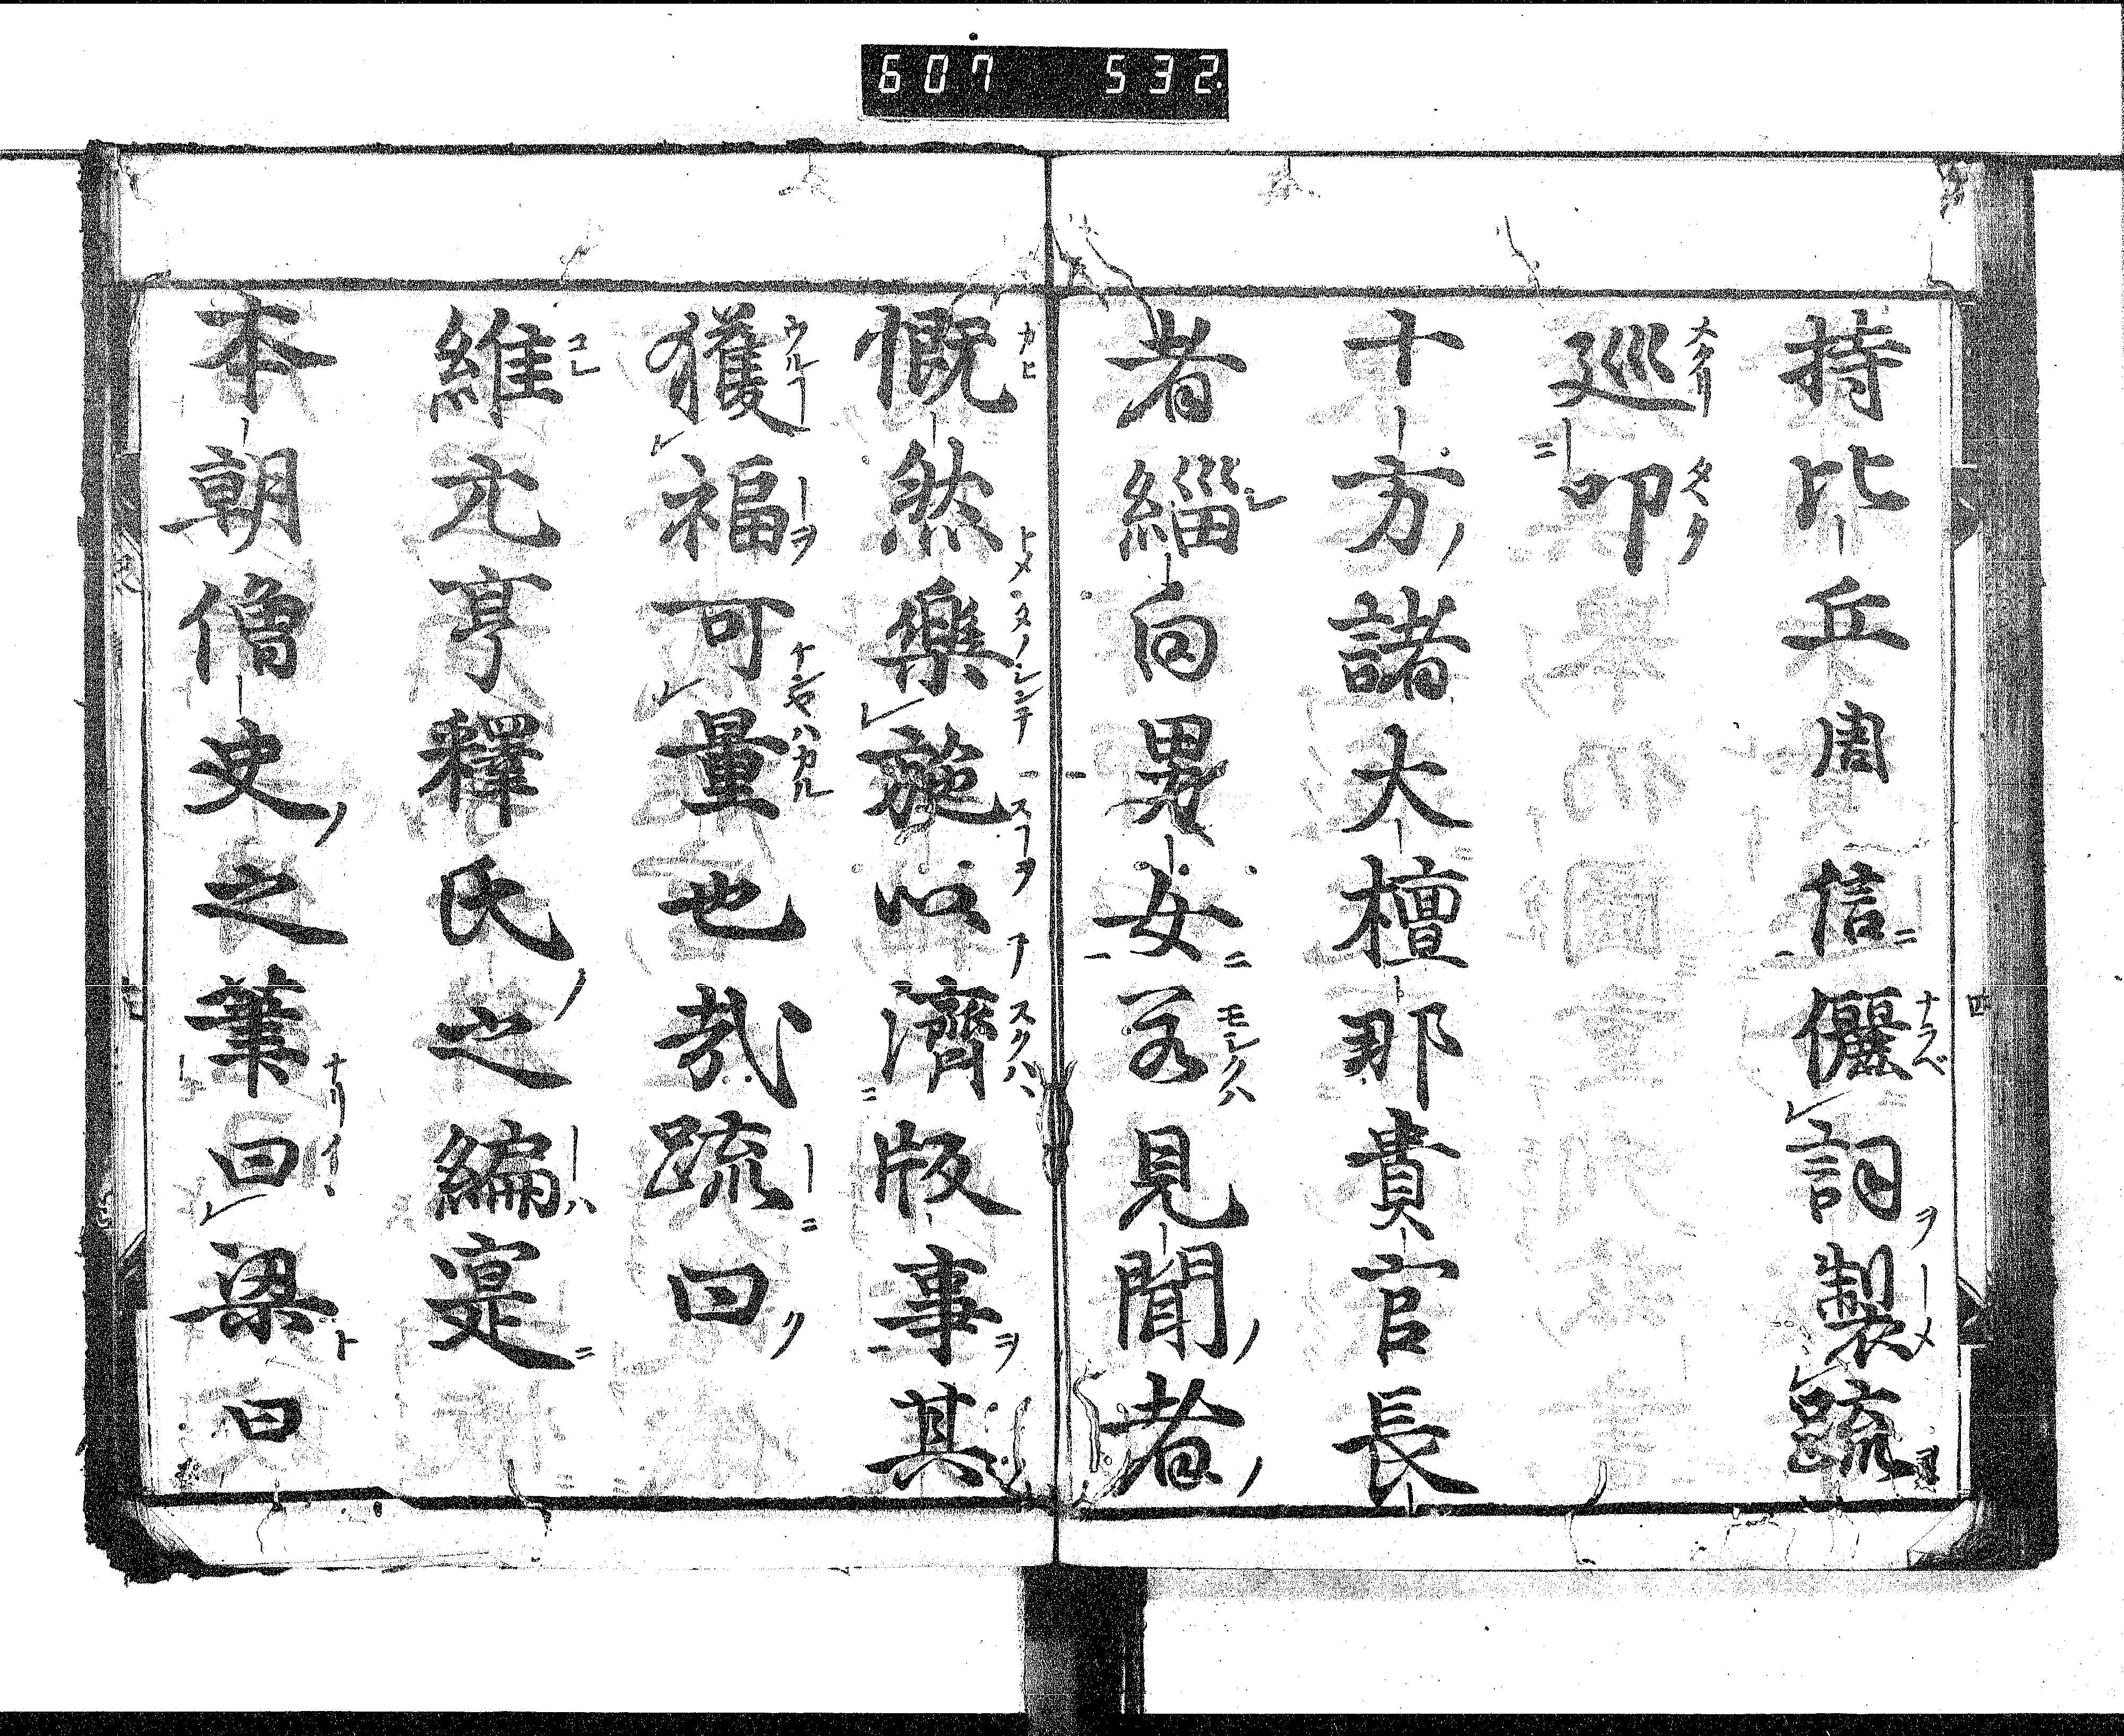 607 532
持比丘周信儷詞製疏
巡叩
十方諸大檀那貴官長
者緇白男女若見聞者
慨然樂施以濟版事其
獲福可量也哉疏曰
維元亨釋氏之編寔
本朝僧史之筆曰梁曰
四